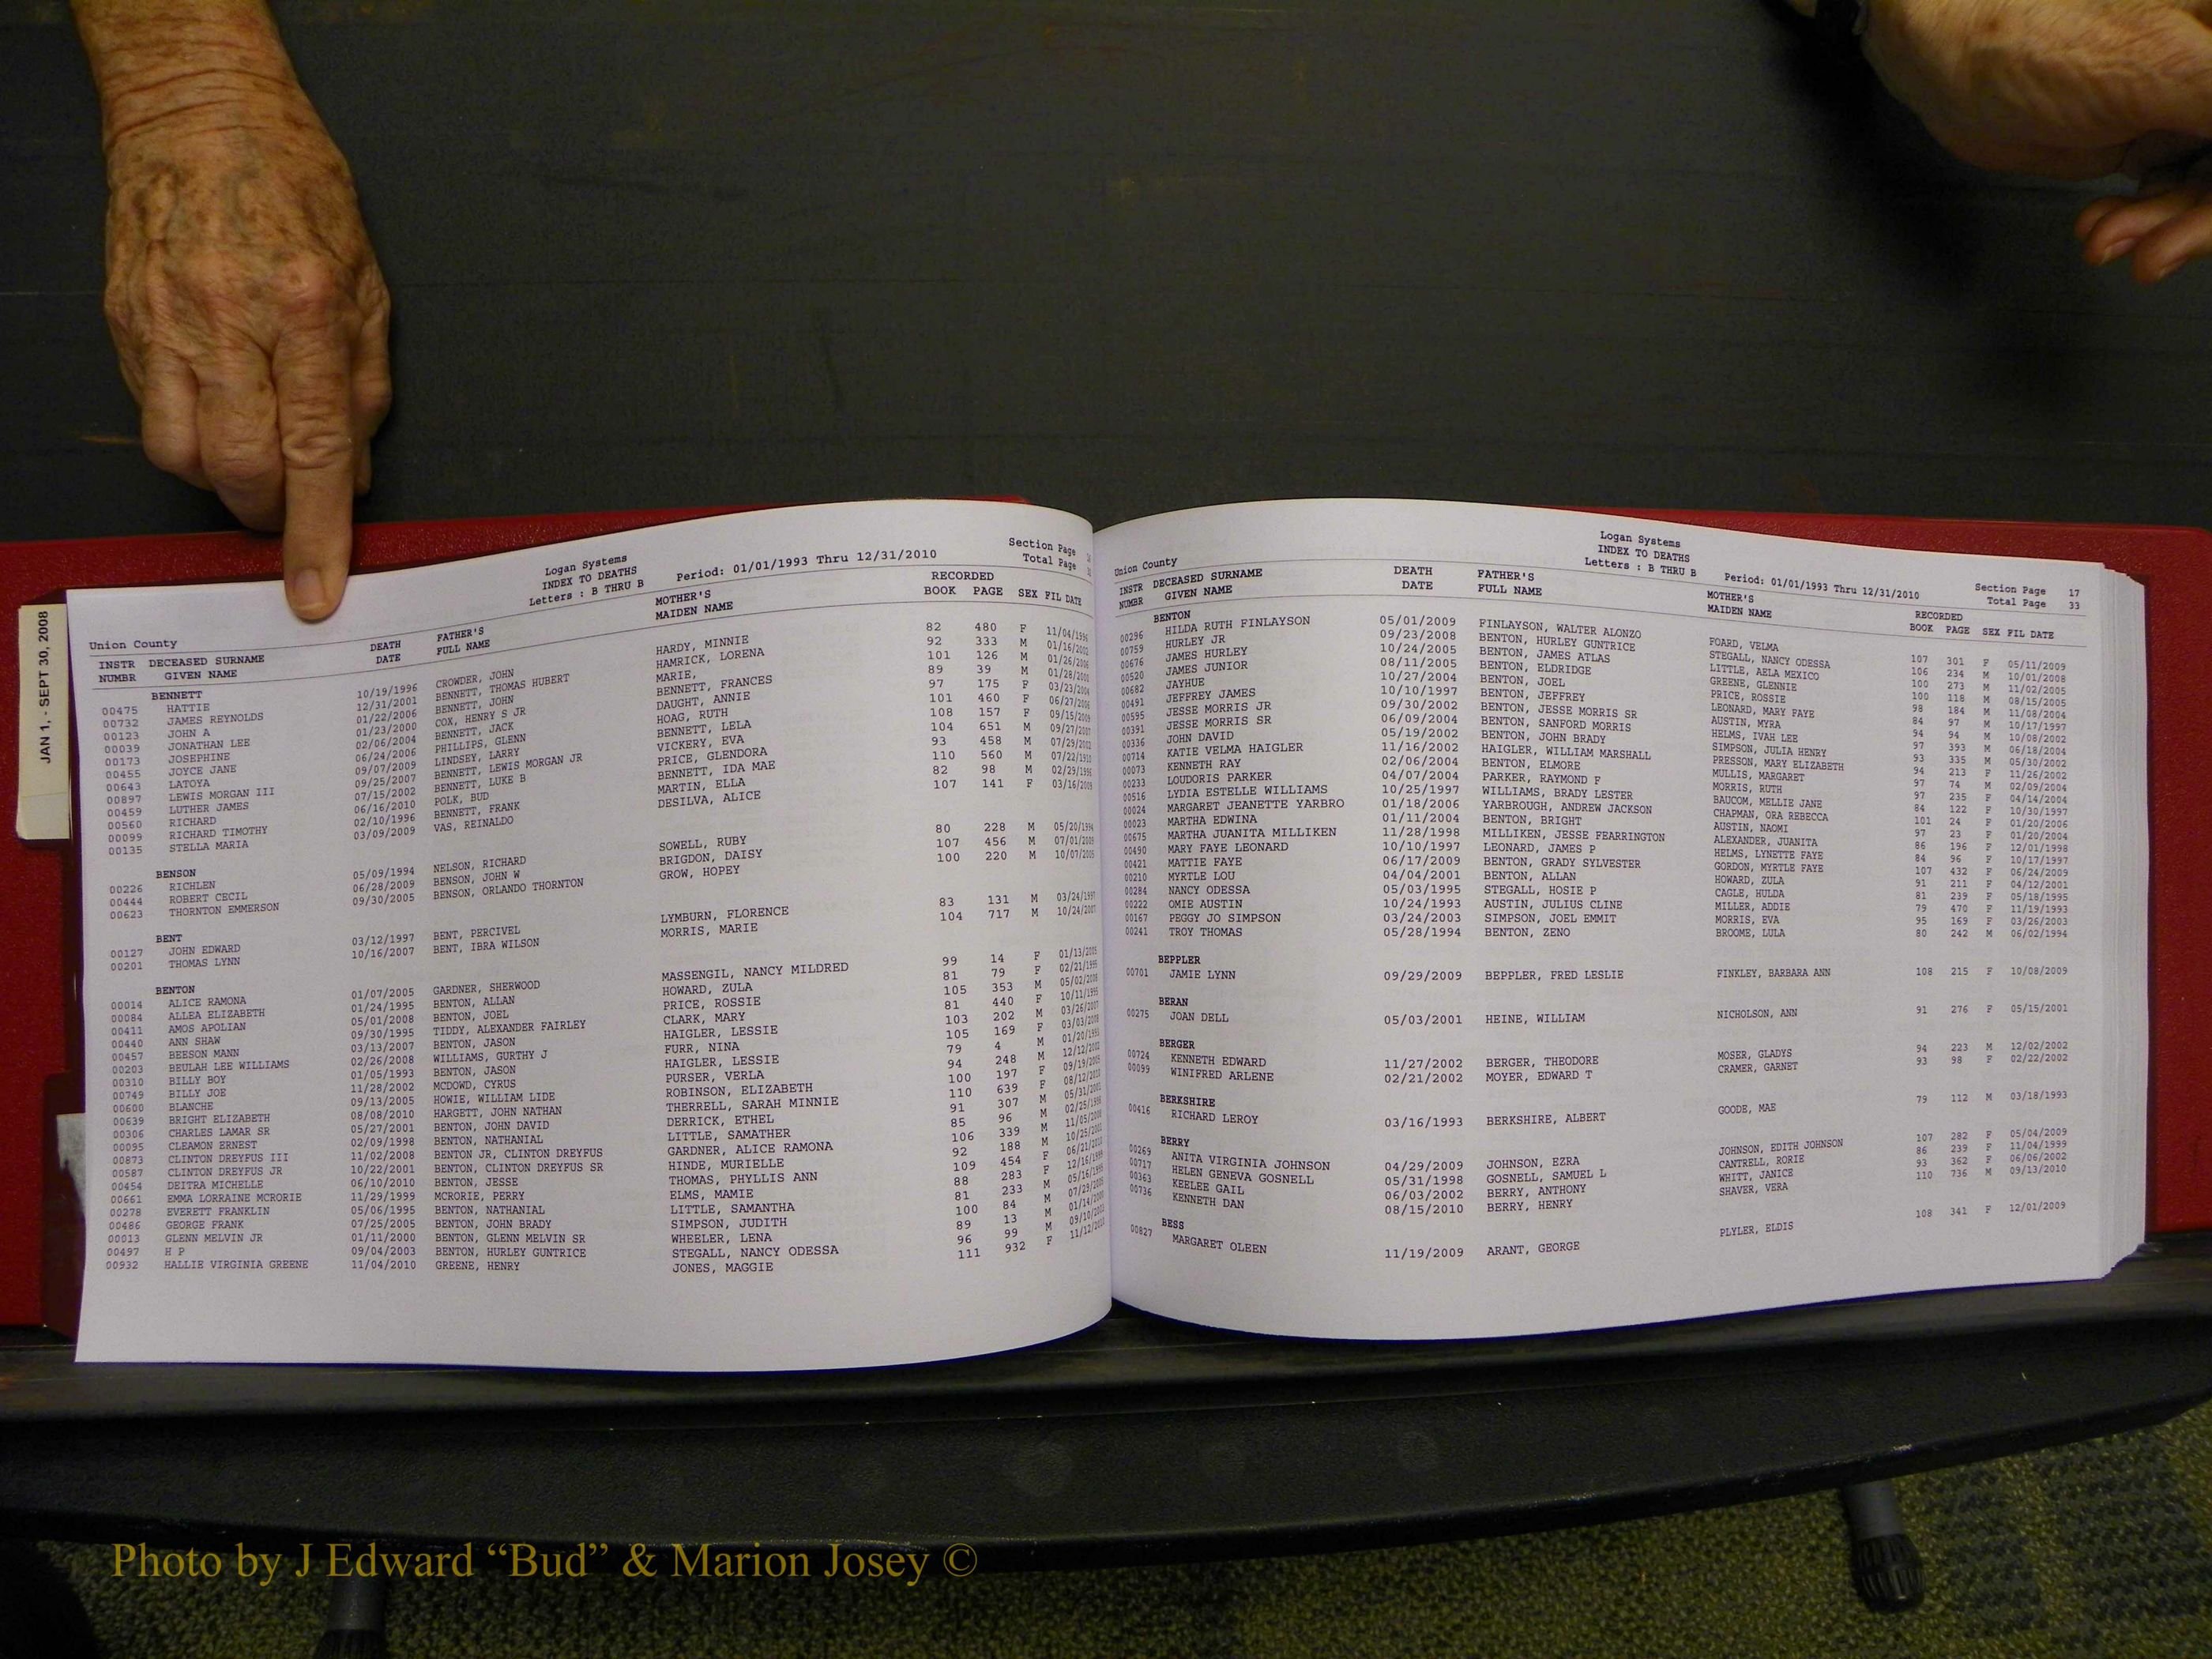 JAN 1, - SEPT 30, 2008
Logan Systems
INDEX TO DEATHS
Letters : B THRU B
Period: 01/01/1993 Thru 12/31/2010
Section Page
Total Page
Union County
INSTR NUMBR DECEASED SURNAME GIVEN NAME DEATH DATE FATHER'S FULL NAME MOTHER'S MAIDEN NAME RECORDED BOOK PAGE SEX FIL DATE
BENNETT
00475 HATTIE 10/19/1996 CROWDER, JOHN HARDY, MINNIE 82 480 F 11/04/1996
00732 JAMES REYNOLDS 12/31/2001 BENNETT, THOMAS HUBERT HAMRICK, LORENA 92 333 M 01/16/2002
00123 JOHN A 01/22/2006 BENNETT, JOHN MARIE, 101 126 M 01/26/2006
00039 JONATHAN LEE 01/23/2000 COX, HENRY S JR BENNETT, FRANCES 89 39 M 01/28/2000
00173 JOSEPHINE 02/06/2004 BENNETT, JACK DAUGHT, ANNIE 97 175 F 03/23/2004
00455 JOYCE JANE 06/24/2006 PHILLIPS, GLENN HOAG, RUTH 101 460 F 06/27/2006
00643 LATOYA 09/07/2009 LINDSEY, LARRY BENNETT, LELA 108 157 F 09/15/2009
00897 LEWIS MORGAN III 09/25/2007 BENNETT, LEWIS MORGAN JR VICKERY, EVA 104 651 M 09/27/2007
00459 LUTHER JAMES 07/15/2002 BENNETT, LUKE B PRICE, GLENDORA 93 458 M 07/29/2002
00560 RICHARD 06/16/2010 POLK, BUD BENNETT, IDA MAE 110 560 M 07/22/2010
00099 RICHARD TIMOTHY 02/10/1996 BENNETT, FRANK MARTIN, ELLA 82 98 M 02/29/1996
00135 STELLA MARIA 03/09/2009 VAS, REINALDO DESILVA, ALICE 107 141 F 03/16/2009
BENSON
00226 RICHLEN 05/09/1994 NELSON, RICHARD SOWELL, RUBY 80 228 M 05/20/1994
00444 ROBERT CECIL 06/28/2009 BENSON, JOHN W BRIGDON, DAISY 107 456 M 07/01/2009
00623 THORNTON EMMERSON 09/30/2005 BENSON, ORLANDO THORNTON GROW, HOPEY 100 220 M 10/07/2005
BENT
00127 JOHN EDWARD 03/12/1997 BENT, PERCIVEL LYMBURN, FLORENCE 83 131 M 03/24/1997
00201 THOMAS LYNN 10/16/2007 BENT, IBRA WILSON MORRIS, MARIE 104 717 M 10/24/2007
BENTON
00014 ALICE RAMONA 01/07/2005 GARDNER, SHERWOOD MASSENGIL, NANCY MILDRED 99 14 F 01/13/2005
00084 ALLEA ELIZABETH 01/24/1995 BENTON, ALLAN HOWARD, ZULA 81 79 F 02/21/1995
00411 AMOS APOLIAN 05/01/2008 BENTON, JOEL PRICE, ROSSIE 105 353 M 05/02/2008
00440 ANN SHAW 09/30/1995 TIDDY, ALEXANDER FAIRLEY CLARK, MARY 81 440 F 10/11/1995
00457 BEESON MANN 03/13/2007 BENTON, JASON HAIGLER, LESSIE 103 202 M 03/26/2007
00203 BEULAH LEE WILLIAMS 02/26/2008 WILLIAMS, GURTHY J FURR, NINA 105 169 F 03/03/2008
00310 BILLY BOY 01/05/1993 BENTON, JASON HAIGLER, LESSIE 79 4 M 01/20/1993
00749 BILLY JOE 11/28/2002 MCDOWD, CYRUS PURSER, VERLA 94 248 M 12/12/2002
00600 BLANCHE 09/13/2005 HOWIE, WILLIAM LIDE ROBINSON, ELIZABETH 100 197 F 09/19/2005
00639 BRIGHT ELIZABETH 08/08/2010 HARGETT, JOHN NATHAN THERRELL, SARAH MINNIE 110 639 F 08/12/2010
00306 CHARLES LAMAR SR 05/27/2001 BENTON, JOHN DAVID DERRICK, ETHEL 91 307 M 05/31/2001
00095 CLEAMON ERNEST 02/09/1998 BENTON, NATHANIAL LITTLE, SAMATHER 85 96 M 02/25/1998
00873 CLINTON DREYFUS III 11/02/2008 BENTON JR, CLINTON DREYFUS GARDNER, ALICE RAMONA 106 339 M 11/05/2008
00587 CLINTON DREYFUS JR 10/22/2001 BENTON, CLINTON DREYFUS SR HINDE, MURIELLE 92 188 M 10/25/2001
00454 DEITRA MICHELLE 06/10/2010 BENTON, JESSE THOMAS, PHYLLIS ANN 109 454 F 06/21/2010
00661 EMMA LORRAINE MCRORIE 11/29/1999 MCRORIE, PERRY ELMS, MAMIE 88 283 F 12/16/1999
00278 EVERETT FRANKLIN 05/06/1995 BENTON, NATHANIAL LITTLE, SAMANTHA 81 233 M 05/16/1995
00486 GEORGE FRANK 07/25/2005 BENTON, JOHN BRADY SIMPSON, JUDITH 100 84 M 07/29/2005
00013 GLENN MELVIN JR 01/11/2000 BENTON, GLENN MELVIN SR WHEELER, LENA 89 13 M 01/14/2000
00497 H P 09/04/2003 BENTON, HURLEY GUNTRICE STEGALL, NANCY ODESSA 96 99 M 09/10/2003
00932 HALLIE VIRGINIA GREENE 11/04/2010 GREENE, HENRY JONES, MAGGIE 111 932 F 11/12/2010
Logan Systems
INDEX TO DEATHS
Letters : B THRU B
Period: 01/01/1993 Thru 12/31/2010
Section Page 17
Total Page 33
Union County
INSTR NUMBR DECEASED SURNAME GIVEN NAME DEATH DATE FATHER'S FULL NAME MOTHER'S MAIDEN NAME RECORDED BOOK PAGE SEX FIL DATE
BENTON
00296 HILDA RUTH FINLAYSON 05/01/2009 FINLAYSON, WALTER ALONZO FOARD, VELMA 107 301 F 05/11/2009
00759 HURLEY JR 09/23/2008 BENTON, HURLEY GUNTRICE STEGALL, NANCY ODESSA 106 234 M 10/01/2008
00676 JAMES HURLEY 10/24/2005 BENTON, JAMES ATLAS LITTLE, AELA MEXICO 100 273 M 11/02/2005
00520 JAMES JUNIOR 08/11/2005 BENTON, ELDRIDGE GREENE, GLENNIE 100 118 M 08/15/2005
00682 JAYHUE 10/27/2004 BENTON, JOEL PRICE, ROSSIE 98 184 M 11/08/2004
00491 JEFFREY JAMES 10/10/1997 BENTON, JEFFREY LEONARD, MARY FAYE 84 97 M 10/17/1997
00595 JESSE MORRIS JR 09/30/2002 BENTON, JESSE MORRIS SR AUSTIN, MYRA 94 94 M 10/08/2002
00391 JESSE MORRIS SR 06/09/2004 BENTON, SANFORD MORRIS HELMS, IVAH LEE 97 393 M 06/18/2004
00336 JOHN DAVID 05/19/2002 BENTON, JOHN BRADY SIMPSON, JULIA HENRY 93 335 M 05/30/2002
00714 KATIE VELMA HAIGLER 11/16/2002 HAIGLER, WILLIAM MARSHALL PRESSON, MARY ELIZABETH 94 213 F 11/26/2002
00073 KENNETH RAY 02/06/2004 BENTON, ELMORE MULLIS, MARGARET 97 74 M 02/09/2004
00233 LOUDORIS PARKER 04/07/2004 PARKER, RAYMOND F MORRIS, RUTH 97 235 F 04/14/2004
00516 LYDIA ESTELLE WILLIAMS 10/25/1997 WILLIAMS, BRADY LESTER BAUCOM, MELLIE JANE 84 122 F 10/30/1997
00024 MARGARET JEANETTE YARBRO 01/18/2006 YARBROUGH, ANDREW JACKSON CHAPMAN, ORA REBECCA 101 24 F 01/20/2006
00023 MARTHA EDWINA 01/11/2004 BENTON, BRIGHT AUSTIN, NAOMI 97 23 F 01/20/2004
00675 MARTHA JUANITA MILLIKEN 11/28/1998 MILLIKEN, JESSE FEARRINGTON ALEXANDER, JUANITA 86 196 F 12/01/1998
00490 MARY FAYE LEONARD 10/10/1997 LEONARD, JAMES P HELMS, LYNETTE FAYE 84 96 F 10/17/1997
00421 MATTIE FAYE 06/17/2009 BENTON, GRADY SYLVESTER GORDON, MYRTLE FAYE 107 432 F 06/24/2009
00210 MYRTLE LOU 04/04/2001 BENTON, ALLAN HOWARD, ZULA 91 211 F 04/12/2001
00284 NANCY ODESSA 05/03/1995 STEGALL, HOSIE P CAGLE, HULDA 81 239 F 05/18/1995
00222 OMIE AUSTIN 10/24/1993 AUSTIN, JULIUS CLINE MILLER, ADDIE 79 470 F 11/19/1993
00167 PEGGY JO SIMPSON 03/24/2003 SIMPSON, JOEL EMMIT MORRIS, EVA 95 169 F 03/26/2003
00241 TROY THOMAS 05/28/1994 BENTON, ZENO BROOME, LULA 80 242 M 06/02/1994
BEPPLER
00701 JAMIE LYNN 09/29/2009 BEPPLER, FRED LESLIE FINKLEY, BARBARA ANN 108 215 F 10/08/2009
BERAN
00275 JOAN DELL 05/03/2001 HEINE, WILLIAM NICHOLSON, ANN 91 276 F 05/15/2001
BERGER
00724 KENNETH EDWARD 11/27/2002 BERGER, THEODORE MOSER, GLADYS 94 223 M 12/02/2002
00099 WINIFRED ARLENE 02/21/2002 MOYER, EDWARD T CRAMER, GARNET 93 98 F 02/22/2002
BERKSHIRE
00416 RICHARD LEROY 03/16/1993 BERKSHIRE, ALBERT GOODE, MAE 79 112 M 03/18/1993
BERRY
00269 ANITA VIRGINIA JOHNSON 04/29/2009 JOHNSON, EZRA JOHNSON, EDITH JOHNSON 107 282 F 05/04/2009
00717 HELEN GENEVA GOSNELL 05/31/1998 GOSNELL, SAMUEL L CANTRELL, RORIE 86 239 F 11/04/1999
00363 KEELEE GAIL 06/03/2002 BERRY, ANTHONY WHITT, JANICE 93 362 F 06/06/2002
00736 KENNETH DAN 08/15/2010 BERRY, HENRY SHAVER, VERA 110 736 M 09/13/2010
BESS
00827 MARGARET OLEEN 11/19/2009 ARANT, GEORGE PLYLER, ELDIS 108 341 F 12/01/2009
Photo by J Edward “Bud” & Marion Josey ©